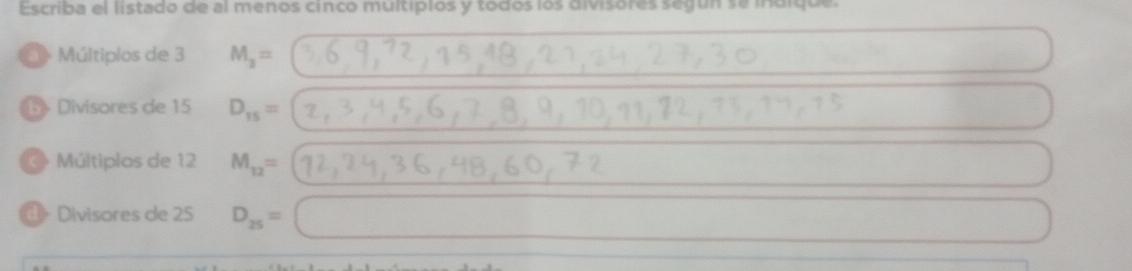 Escriba el listado de al menos cinco múltiplos y todos los divisores según se indique.
a Múltiplos de 3 M₃ = 3,6,9,12,15,18,21,24,27,30
b Divisores de 15 D₁₅ = 2,3,4,5,6,7,8,9,10,11,12,13,14,15
c Múltiplos de 12 M₁₂= 12,24,36,48,60,72
d Divisores de 25 D₂₅ =